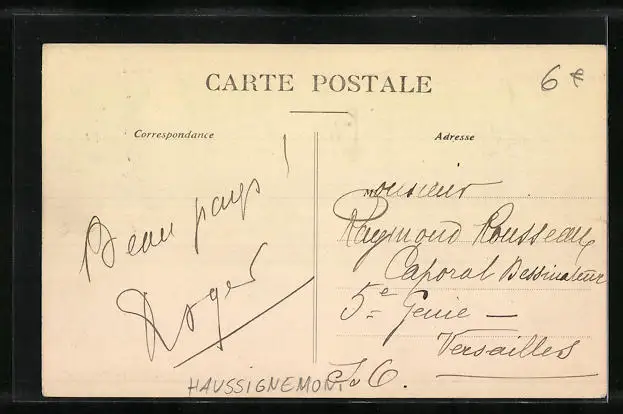 CARTE POSTALE
6*
Correspondance
Adresse
Beau pays !
Roger
Monsieur
Raymond Rousseau
Caporal Dessinateur
5e Genie —
Versailles
HAUSSIGNEMONT